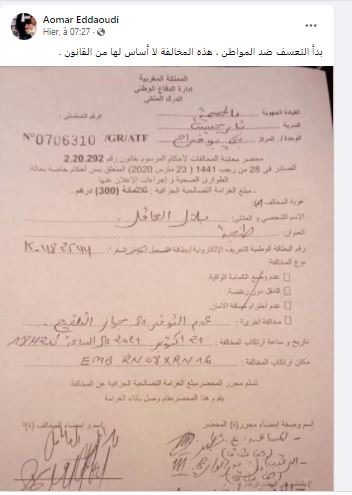 Aomar Eddaoudi
Hier, à 07:27
بدأ التعسف ضد المواطن ، هذه المخالفة لا أساس لها من القانون .
المملكة المغربية
إدارة الدفاع الوطني
الدرك الملكي
القيادة الجهوية
الرقم التسلسلي
السرية
الوحدة / المركز
N°0706310 /GR/ATF
محضر معاينة المخالفات لأحكام المرسوم بقانون رقم 2.20.292
الصادر في 28 من رجب 1441 ( 23 مارس 2020) المتعلق بسن أحكام خاصة بحالة
الطوارئ الصحية و إجراءات الإعلان عنها
- مبلغ الغرامة التصالحية الجزافية : ثلاثمائة (300) درهم .
هوية المخالف
الإسم الشخصي و العائلي
العنوان : طنجة
رقم البطاقة الوطنية للتعريف الإلكترونية / بطاقة التسجيل
نوع المخالفة:
عدم وضع الكمامة الواقية.
التنقل دون رخصة.
عدم احترام مسافة الأمان.
مخالفة أخرى : عدم التوفر على جواز التلقيح
تاريخ و ساعة ارتكاب المخالفة 21 أكتوبر 2021 على الساعة 18H20
مكان ارتكاب المخالفة EMB RN08XRN16
تسلم محرر المحضر مبلغ الغرامة التصالحية الجزافية عن المخالفة
يقوم هذا المحضر مقام وصل بأداء الغرامة
إسم وصفة إمضاء محرر(ي) المحضر
إسم و إمضاء المخالف